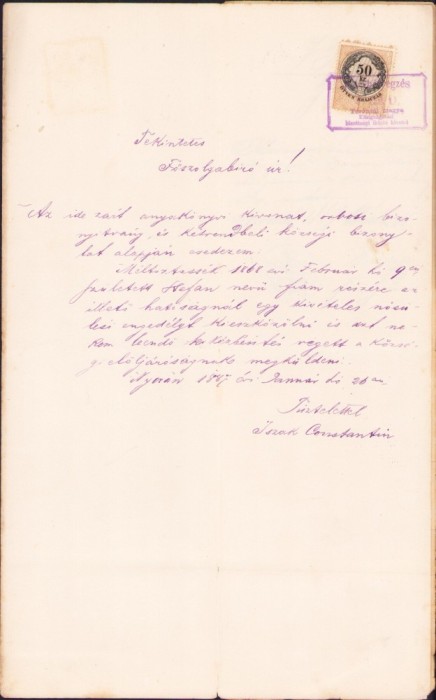 50
Tekintetes
Főszolgabiró úr!
Az ide zárt anyakönyvi kivonat, orvosi bizo-
nyitvány és községi bizony-
lat alapján esedezem.
Méltóztassék évi Február hó 9-én
született Stefan nevű fiam részére az
illető hatóságnál egy kivételes nősü-
lési engedélyt kieszközölni és azt ne-
kem leendő kézbesités végett a közsé-
gi elöljáróságnak megküldeni.
1887 évi Január hó 20-án
Tisztelettel
Iszak Constantin